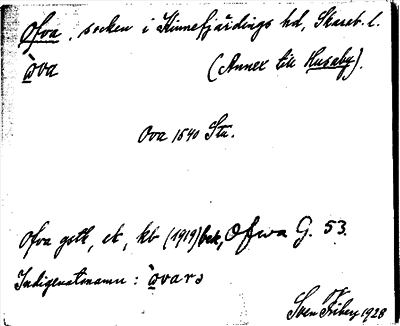 Ofva, socken i Kinnefjärdings hd, Skarab. l.
òva (Annex till Husaby).
Ova 1540 Stu.
Ofva gsth, et, kb (1919) bak, Ofwa G. 53.
Indigenatsnamn: òvars
Sven Friberg 1928